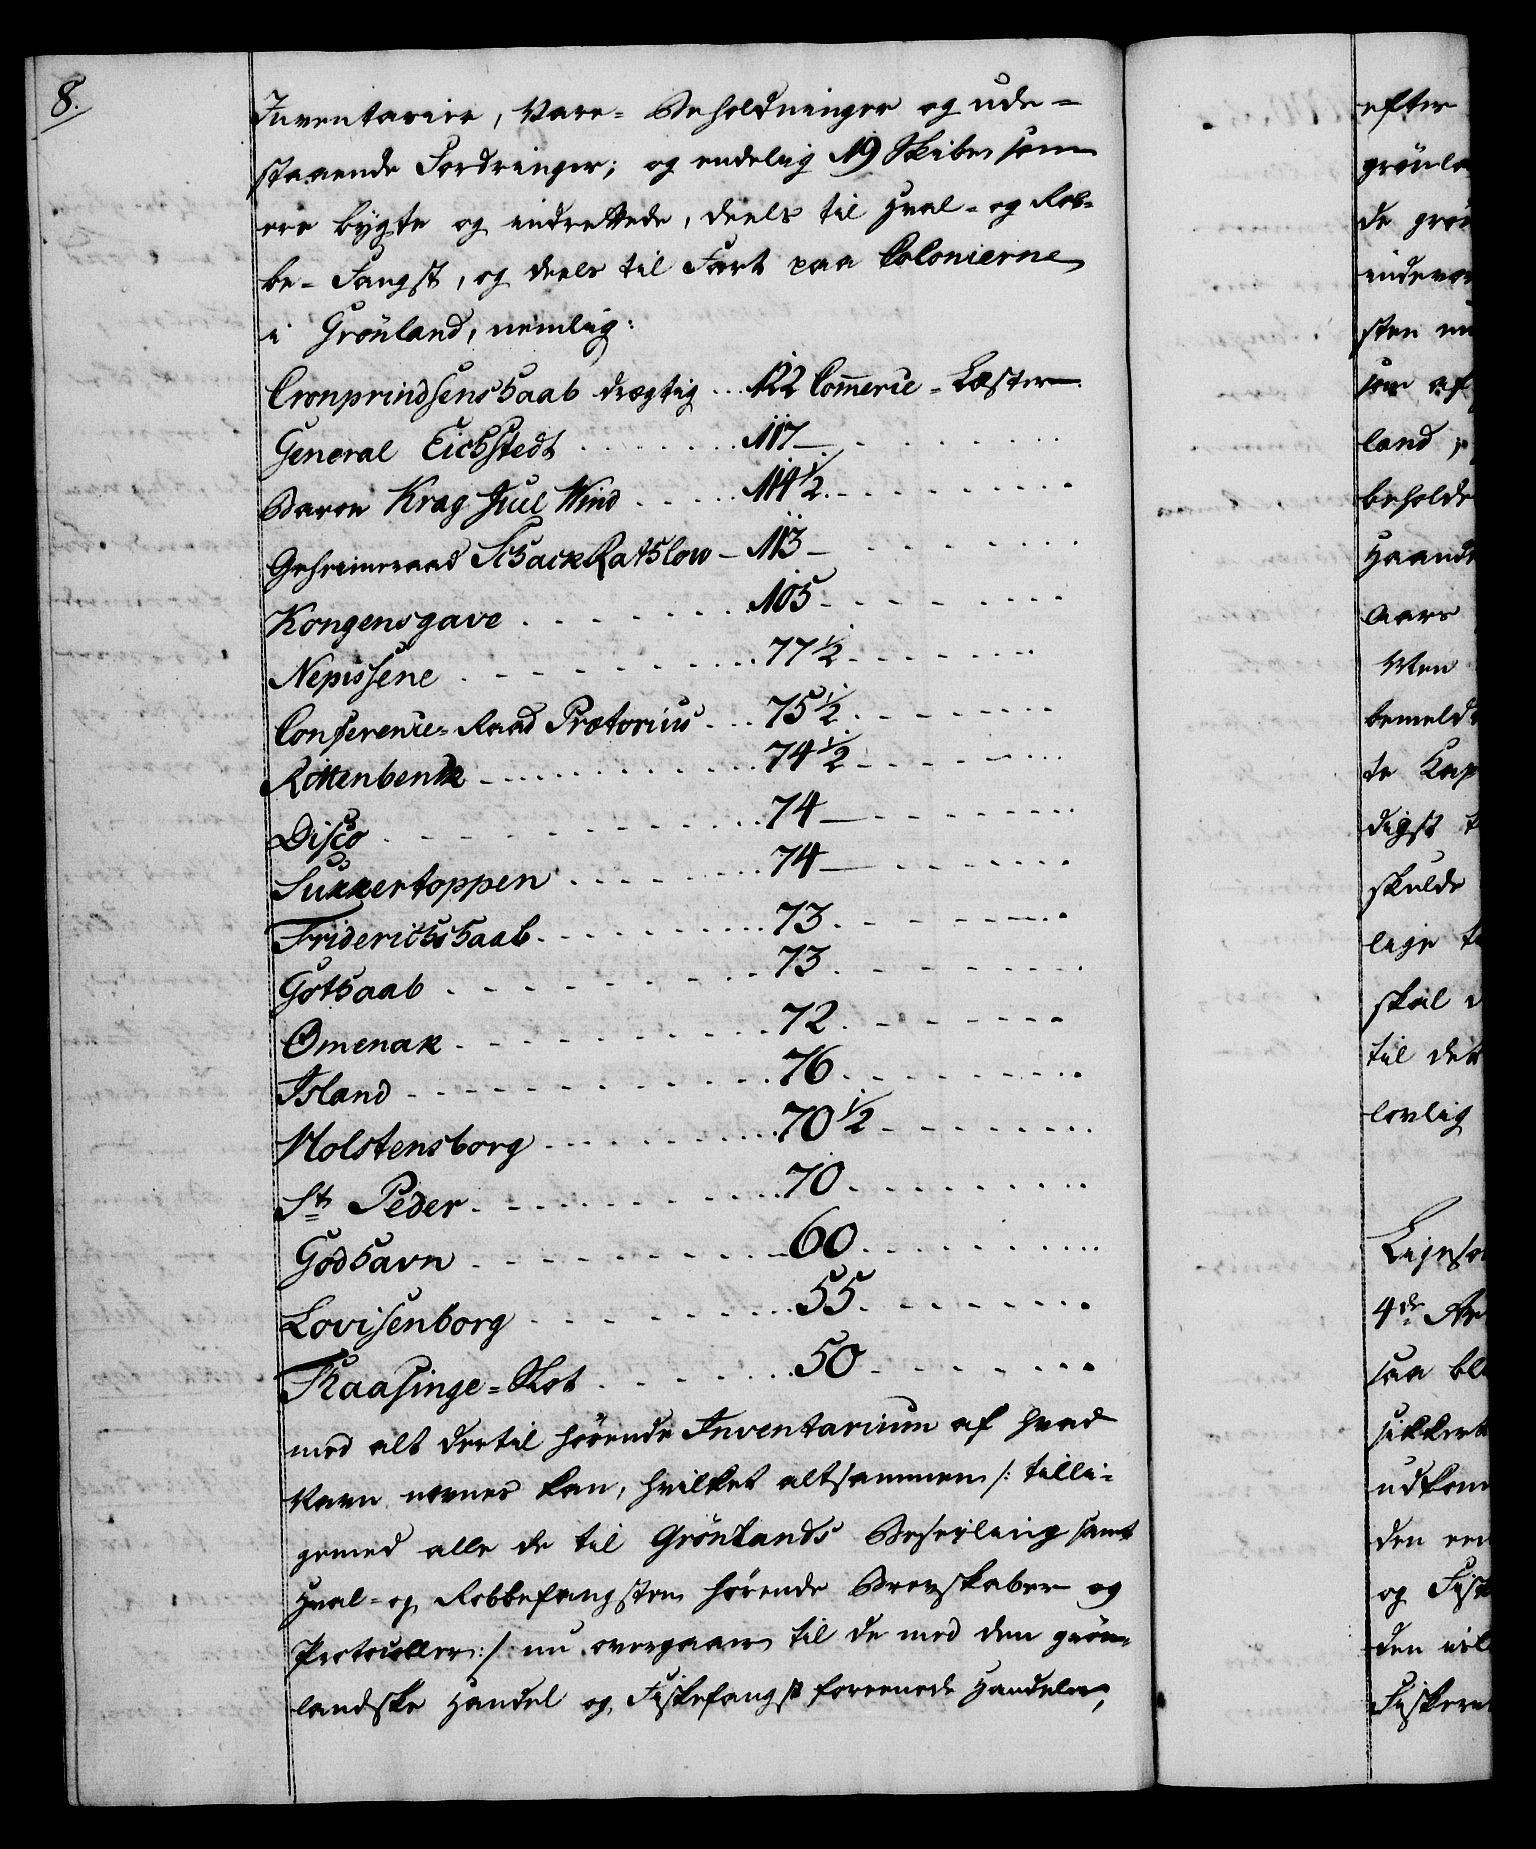 8.
Inventarier, Vare- Beholdninger og ude-
staaende Fordringer; og endelig 19 Skibe som
ere bygte og indrettede, deels til Hval- og Rob-
be- Fangst, og deels til Fart paa Colonierne
i Grönland, nemlig:
Cronprindsenshaab drægtig .. 122 Com̄erce- Læster.
General Eichstedt . . . . . . 117 — . . . . . .
Baron Krag Juel Wind . . . . . 114 1/2 . . . . . .
Geheimeraad Schack Rathlow — 113 — . . . . . .
Kongensgave . . . . . . 105 - . . . . . .
Nepissene . . . . . . 77 1/2 . . . . . .
Conference- Raad Prætorius . . . 75 1/2 . . . . . .
Rittenbenk . . . . . . 74 1/2 . . . . . .
Disco . . . . . . 74 — . . . . . .
Sukkertoppen . . . . . . 74 — . . . . . .
Friderichshaab . . . . . . 73 . . . . . .
Gothaab . . . . . . 73 . . . . . .
Omenak . . . . . . 72 . . . . . .
Island . . . . . . 76 . . . . . .
Holstensborg . . . . . . 70 1/2 . . . . . .
St Peder . . . . . . 70 . . . . . .
Godhavn . . . . . . 60 . . . . . .
Lovisenborg . . . . . . 55 . . . . . .
Thaasinge- Slot . . . . . . 50 . . . . . .
med alt dertil hörende Inventarium af hvad
Navn nævnes kan, hvilket altsammen /: tilli-
gemed alle de til Grönlands Beseyling samt
Hval- og Robbefangsten hörende Brevskaber og
Protocoller :/ nu overgaaer til de med den grön-
landske Handel og Fiskefangst foreenede Handeler,
efter
grönla
de grön
indevæ
sten
som af
land,
beholde
Haand
Aars
Men
bemeld
te Cap
digst t
skulde
lige
skal
til det
lovlig
Ligeso
4de
saa bl
sikkert
udkom
den een
og Fisk
den
Fiskeri